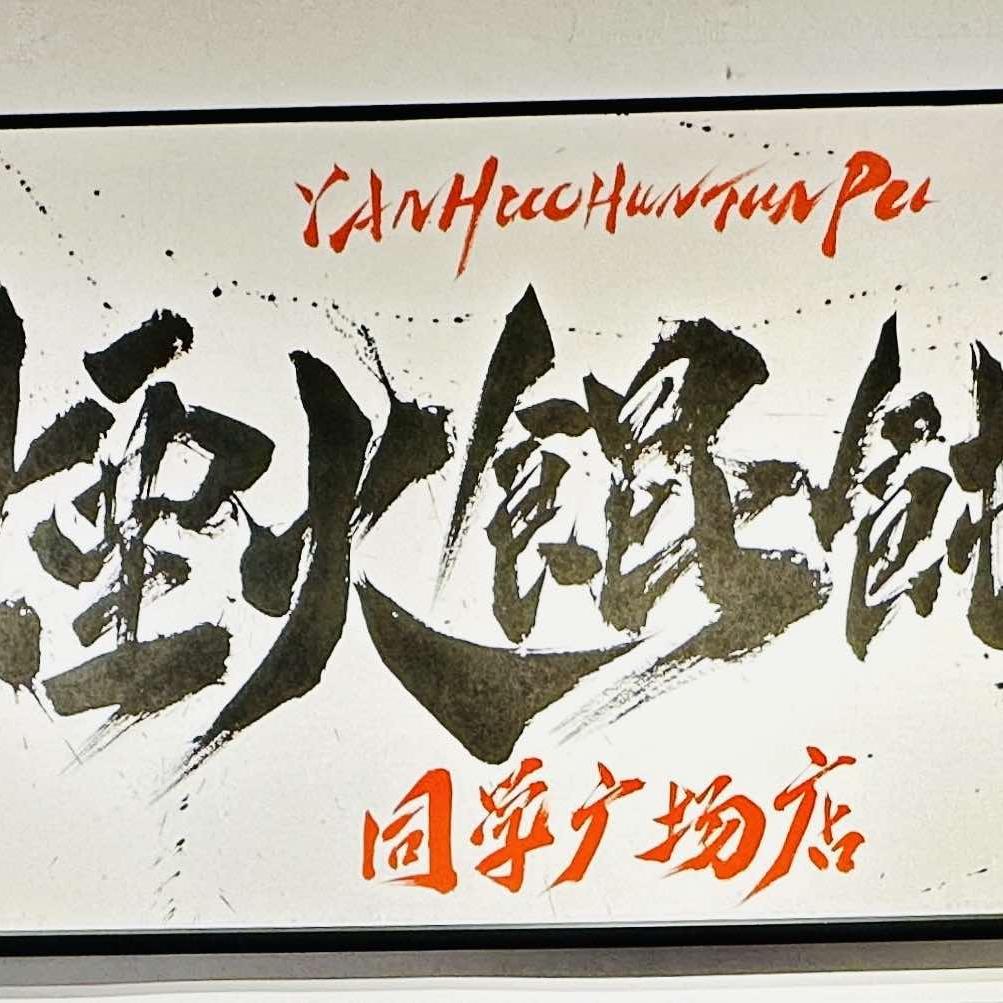 YANHUOHUNTUNPU
煙火餛飩
同学广场店